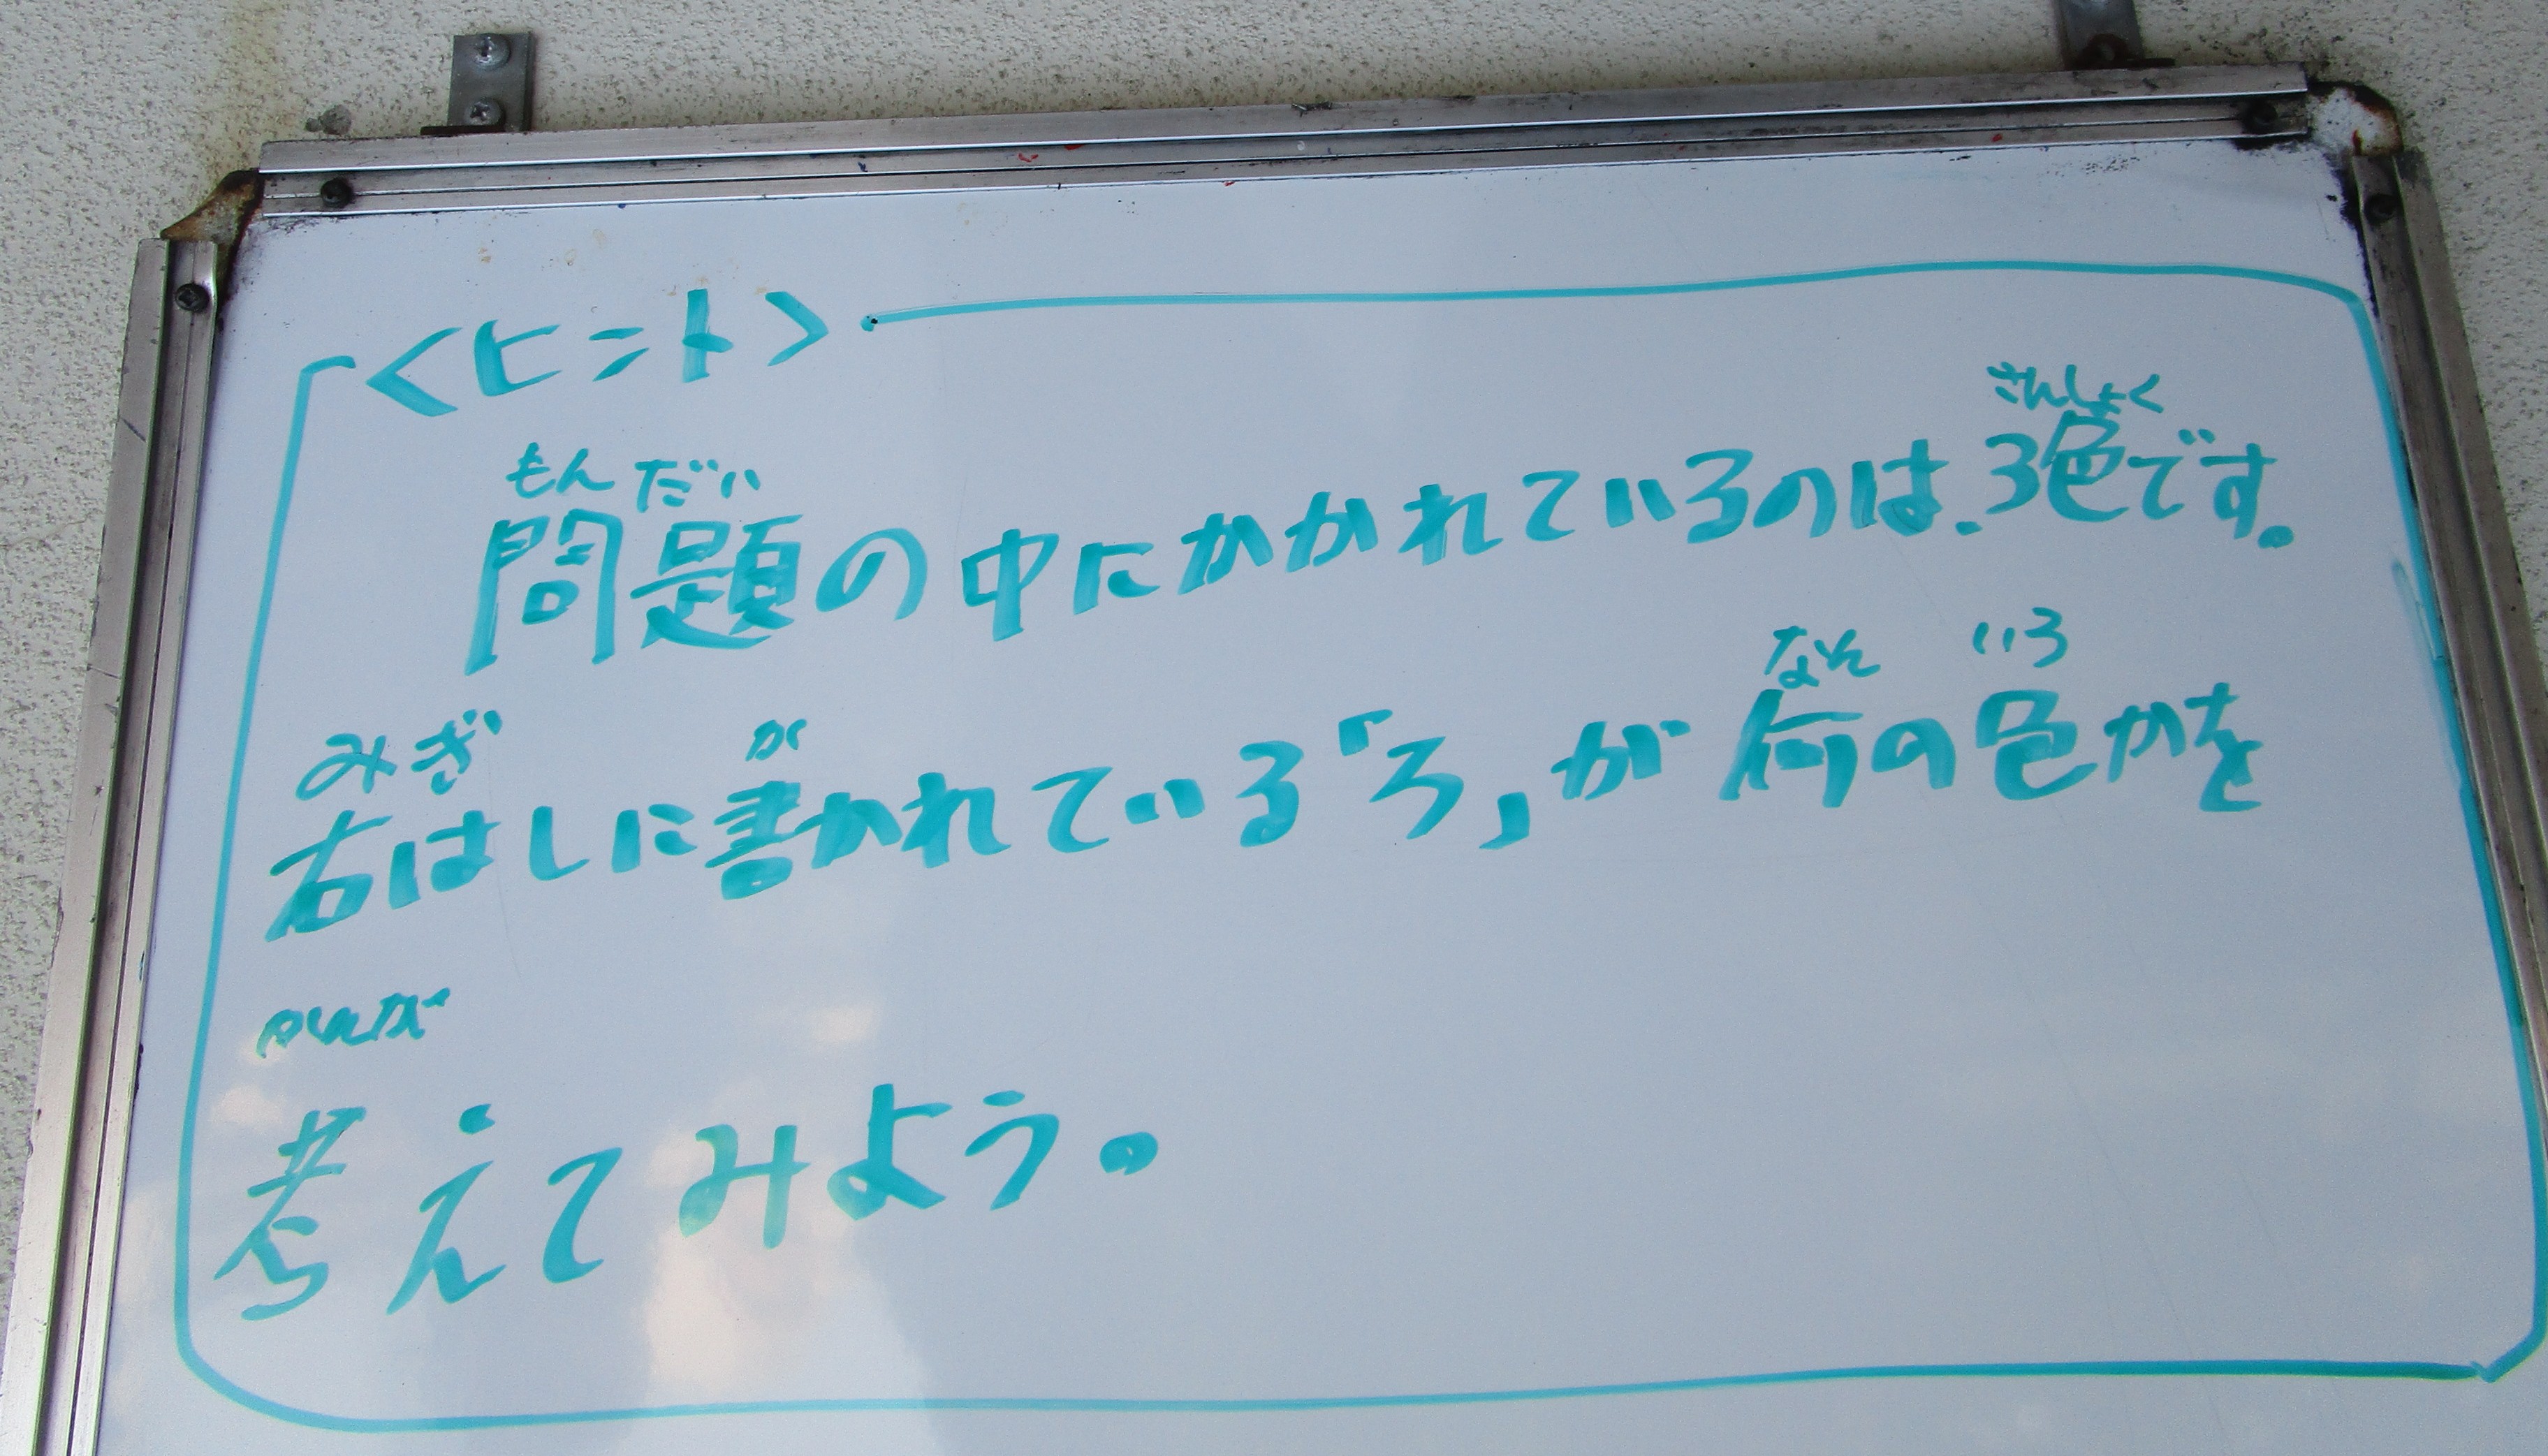 <ヒント>
もんだい さんしょく
問題の中にかかれているのは、3色です。
みぎ か なん いろ
右はしに書かれている「ろ」が何の色かを
かんが
考えてみよう。